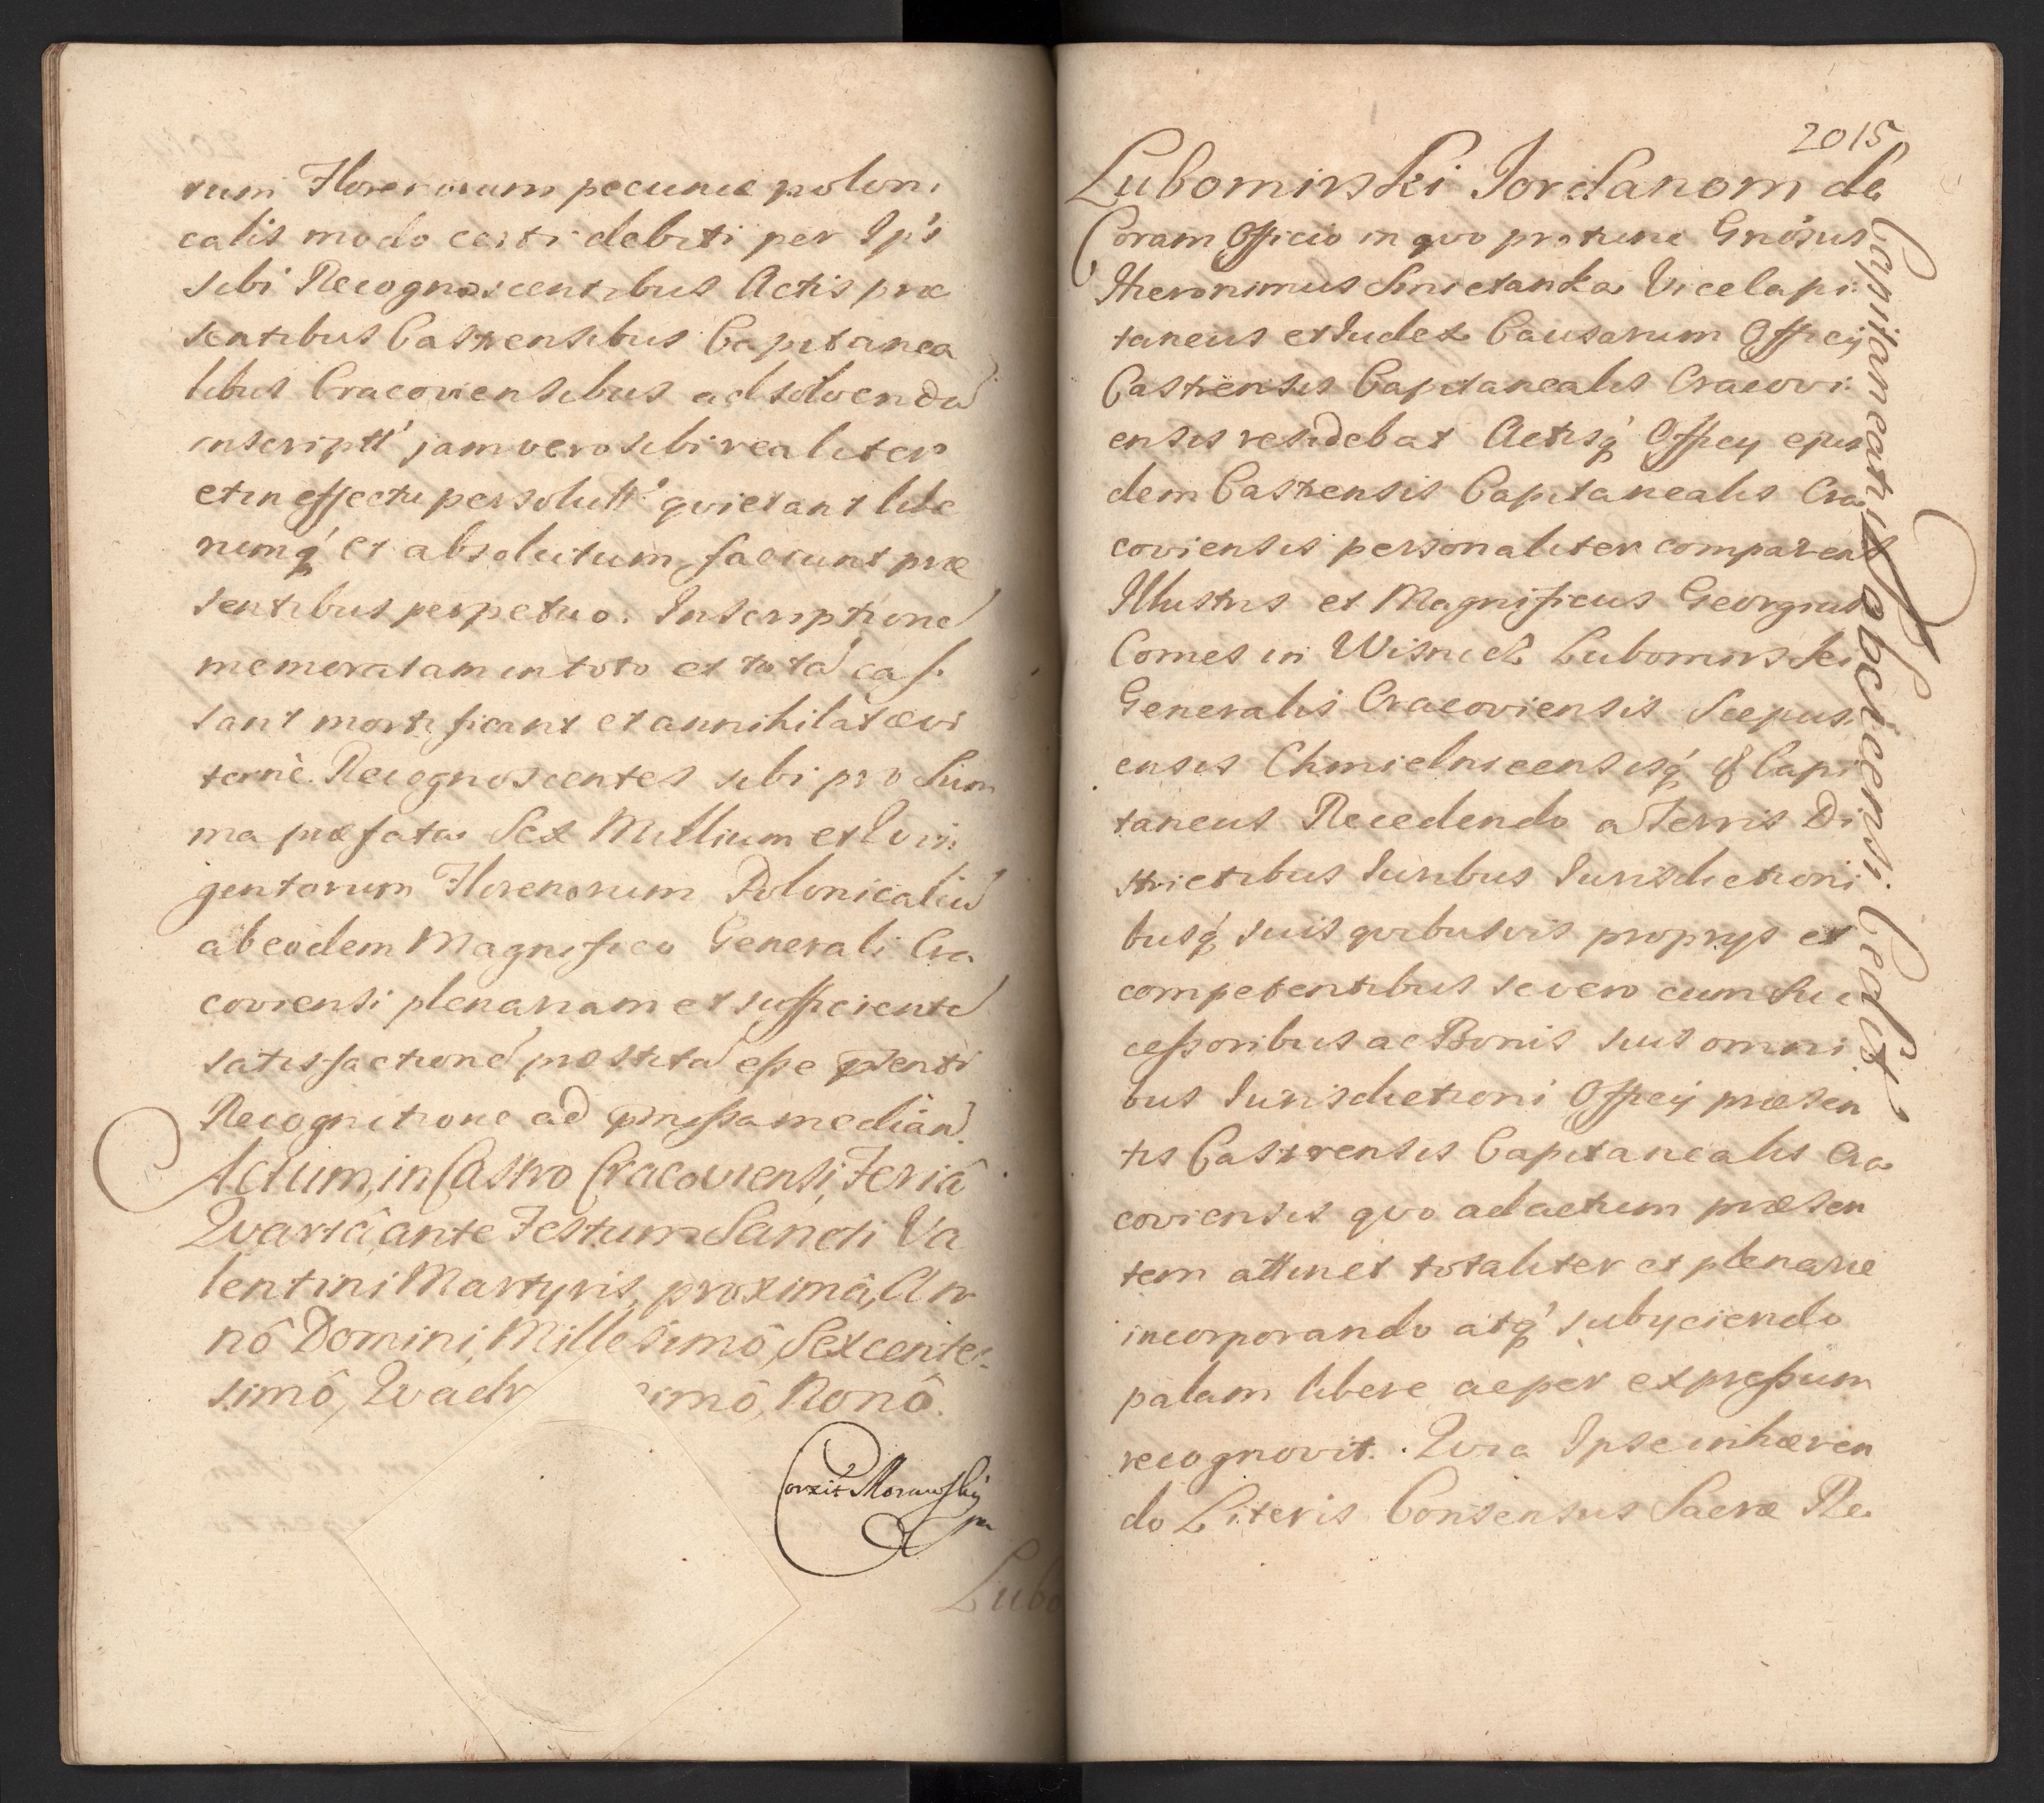 rum Florenorum pecuniæ poloni
calis modo certi debiti per Ip's
sibi Recognoscentibus Actis præ
sentibus Castrensibus Capitanea
libus Cracoviensibus ad solvendũ
inscriptt' jam vero sibi realiter
et in effectu persolutt' quietant libe
rumq' et absolutum faciunt præ
sentibus perpetuo. Inscriptione
memoratam in toto et totã cas
sant mortificant et annihilãt ævi
ternè. Recognoscentes sibi pro Sum
ma præfata Sex Millium et Qvin
gentorum Florenorum Polonicaliũ
ab eodem Magnifico Generali Cra
coviensi plenariam et sufficientẽ
satisfactionẽ præstitã esse
Recognitione ad mediañ.
Actum, in Castro Cracoviensi, Feriâ
Qvartâ, ante Festum Sancti Va
lentini Martyris, proximâ, An
nô Domini, Millesimô, Sexcente
simô, Qvadr imô, Nonô.
Lubo
2015
Lubomirski Jordanom de
Capitaneatu Dobcicensi. Cedit
Coram Officio in qvo pro tunc Gnõsus
Hieronimus Smietanka Vicecapi
taneus et Iudex Causarum Officij
Castrensis Capitanealis Cracovi
ensis residebat Actisq' Officij ejus
dem Castrensis Capitanealis Cra
coviensis personaliter comparens
Illustris et Magnificus Georgius
Comes in Wisnicz Lubomirski
Generalis Cracoviensis Scepusi
ensis Chmielnicensisq' & Capi
taneus Recedendo a Terris Di
strictibus Iuribus Iurisdictioni
busq' suis qvibusvis proprijs et
competentibus se vero cum Suc
cessoribus ac Bonis suis omni
bus Iurisdictioni Officij præsen
tis Castrensis Capitanealis Cra
coviensis qvo ad actum præsen
tem attinet totaliter et plenarie
incorporando atq' subijciendo
palam libere ac per expressum
recognovit. Qvia Ipse inhæren
do Literis Consensus Sacræ Re